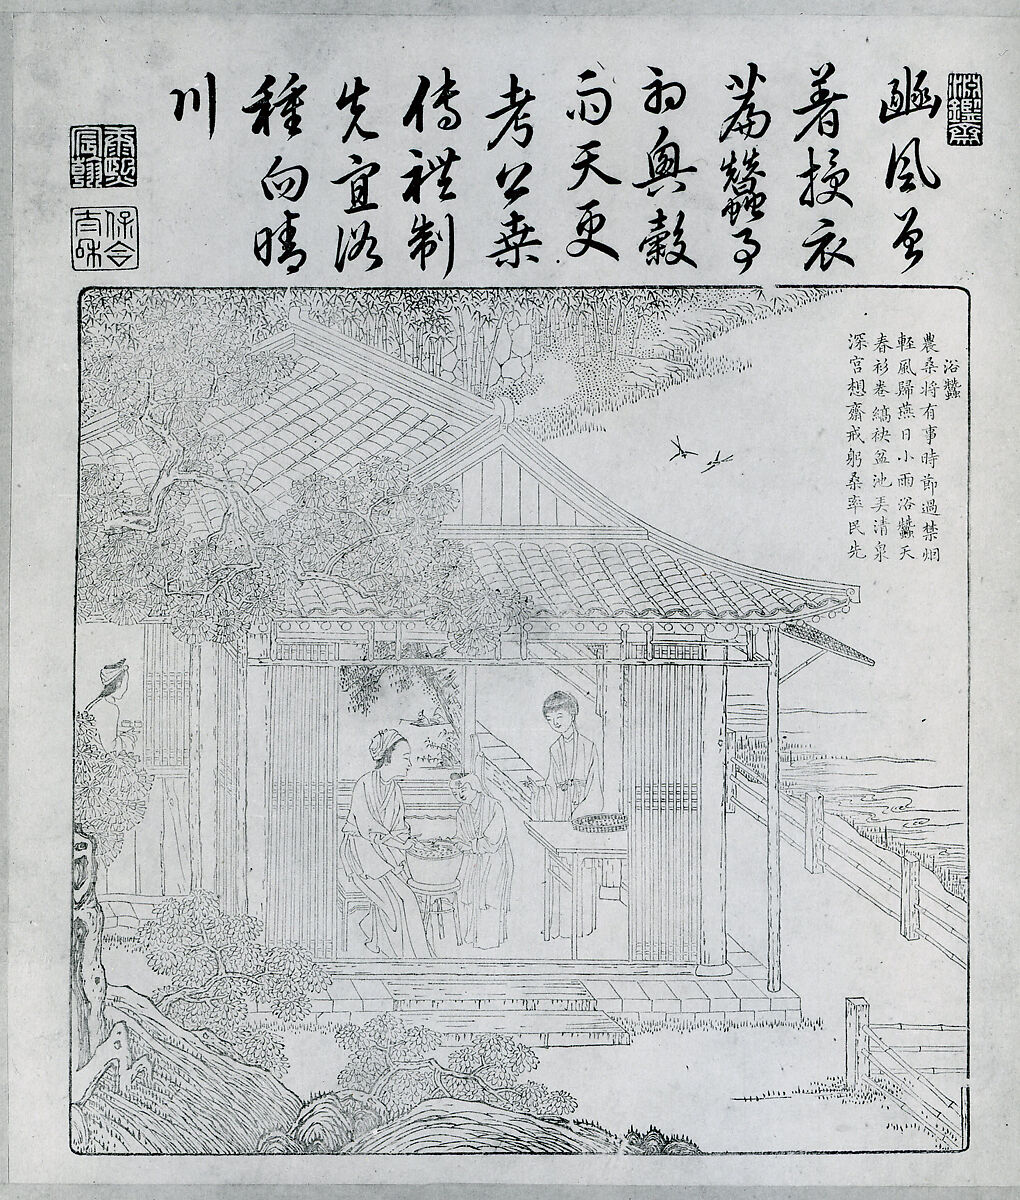 淵鑒齋
豳風曾
著授衣
篇蠶事
初興穀
雨天更
考公桑
傳禮制
先宜浴
種向晴
川
康熙
宸翰
保合
太和
浴蠶
農桑將有事時節過禁烟
輕風歸燕日小雨浴蠶天
春衫卷縞袂盆池弄清泉
深宮想齋戒躬桑率民先